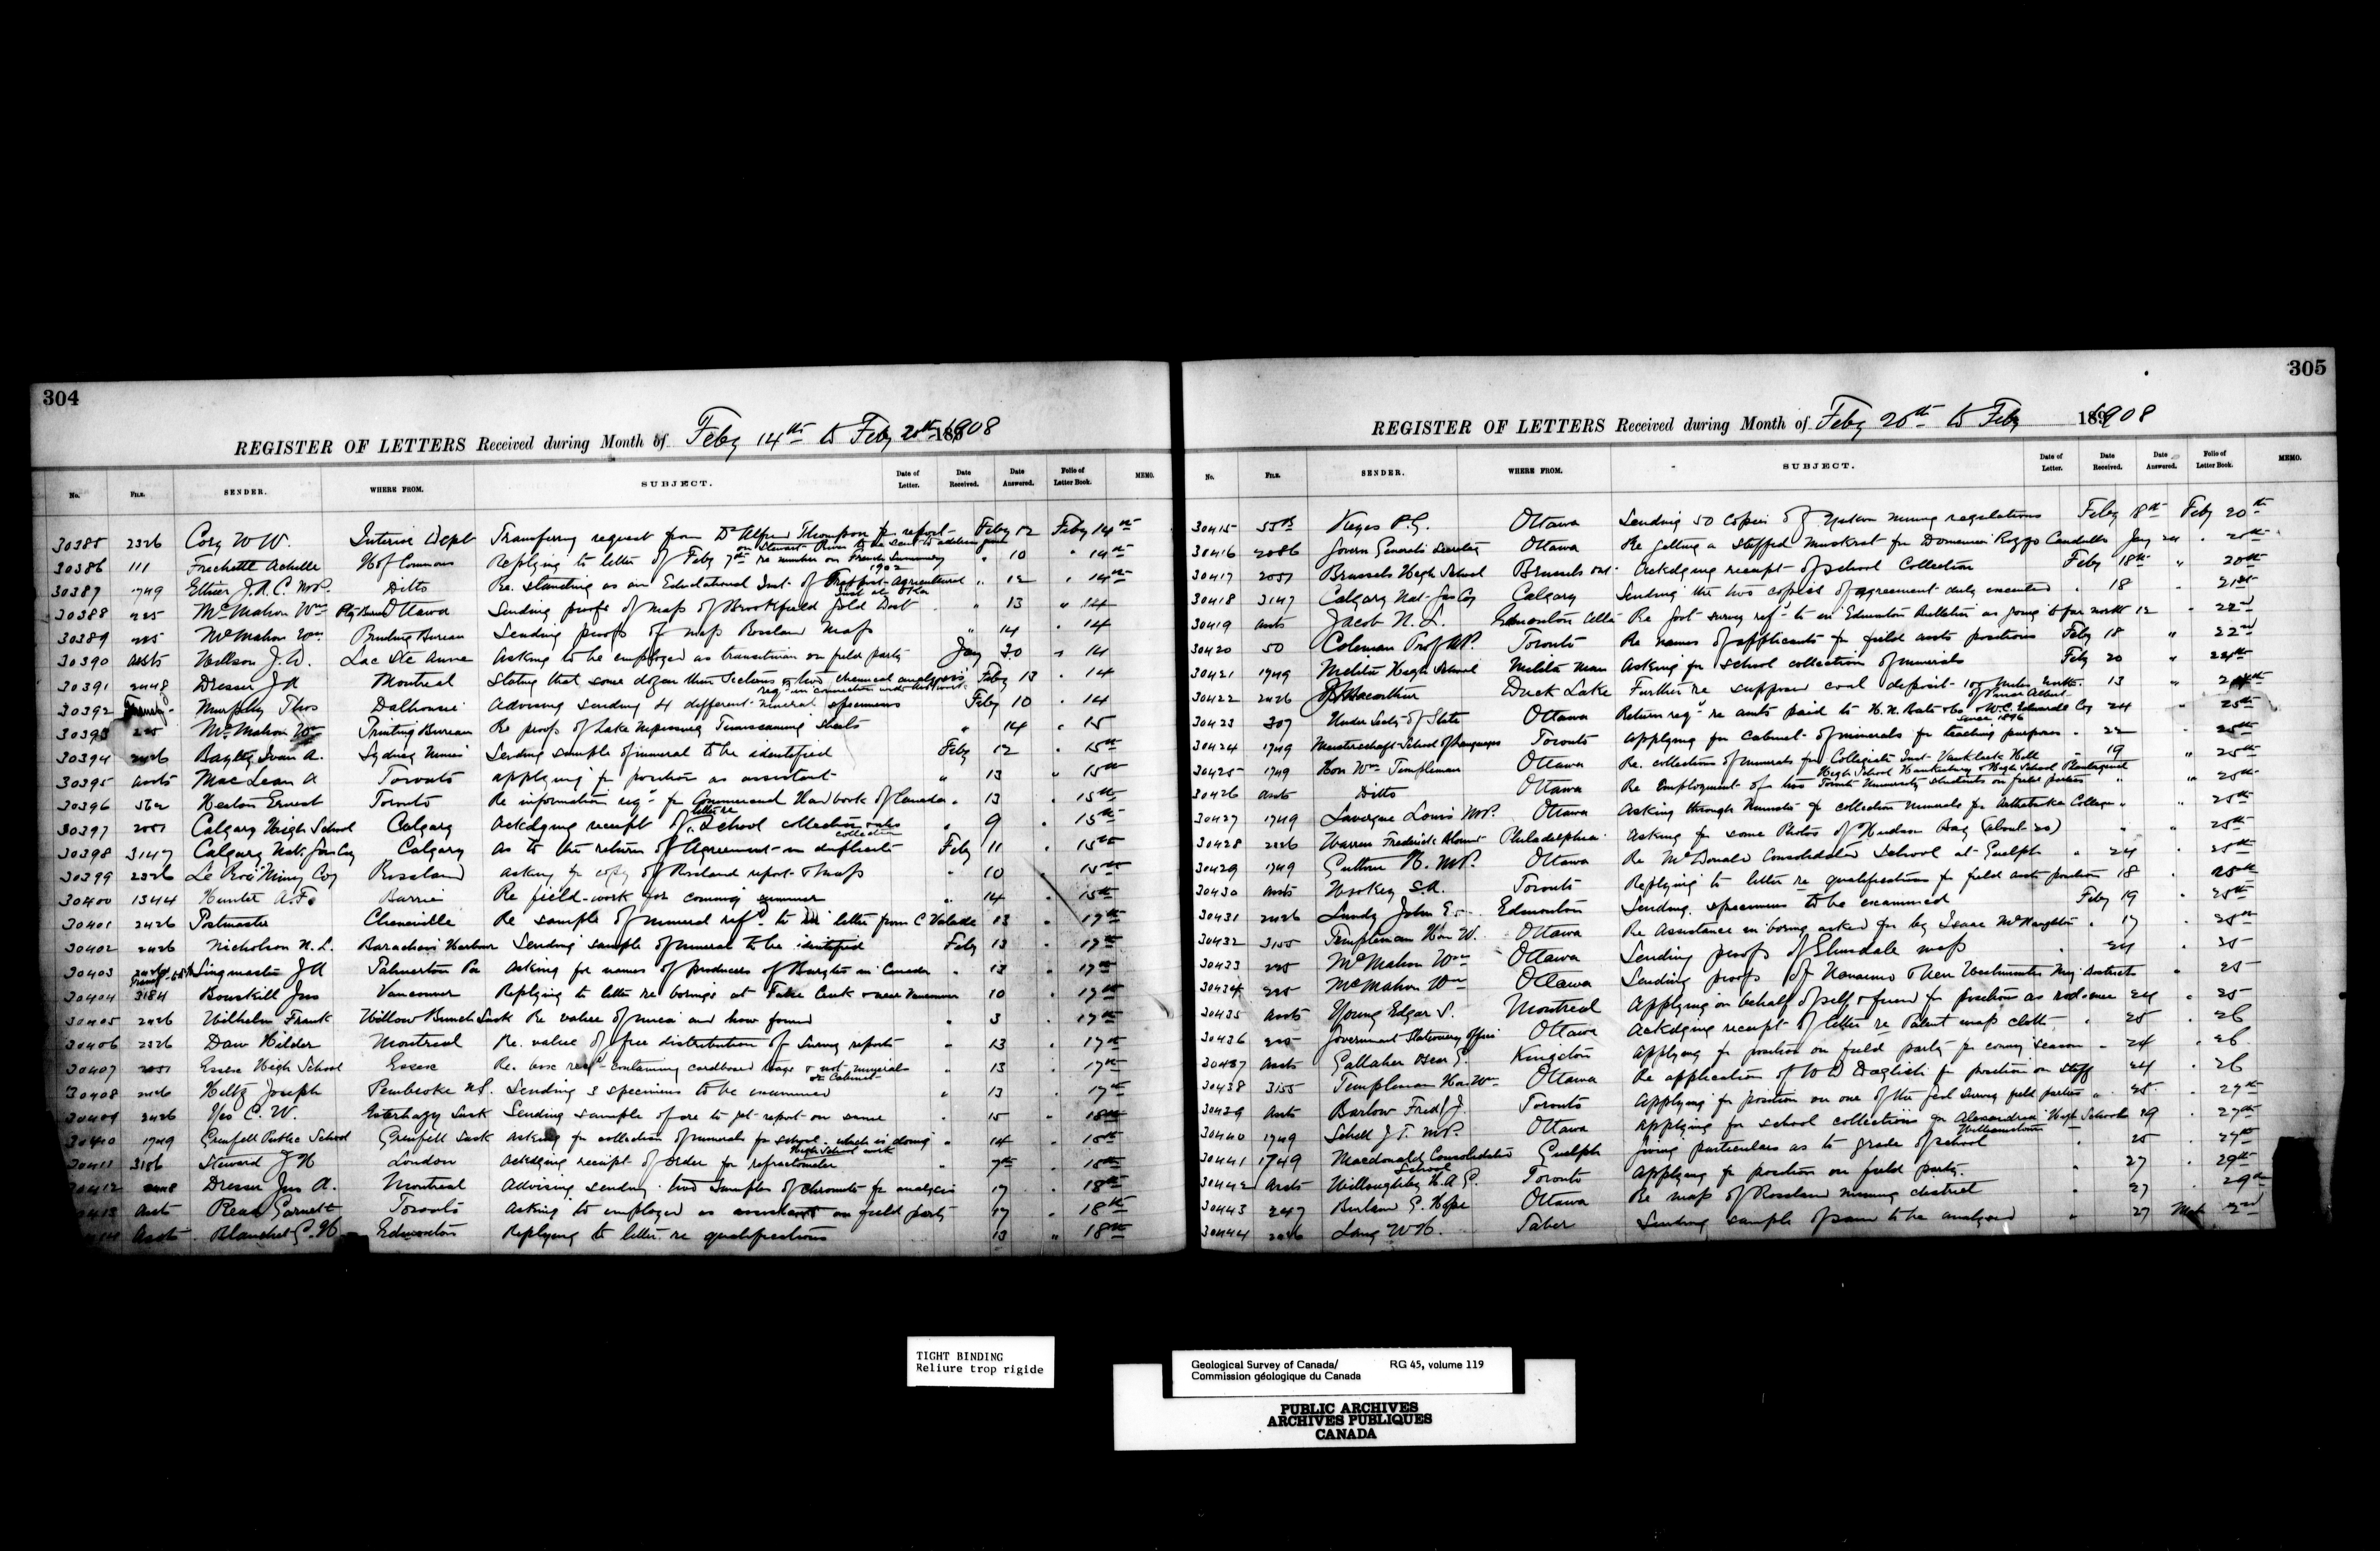 304
REGISTER OF LETTERS Received during Month of Feby 14th to Feby 20th 1908
No. FILE. SENDER. WHERE FROM. SUBJECT. Date of Letter. Date Received. Date Answered. Folio of Letter Book. MEMO.
30385 2326 Cory W W. Interior Dept Transferring request from Dr Alfred Thompson for report Feby 12 Feby 14th
on Stewart River to be sent to address given
30386 111 Frechette Achille H of Commons Replying to letter of Feby 7th re number on French Summary " 10 " 14th
1902
30387 1749 Ethier J.A.C. M.P. Ditto Re. standing as an Educational Inst. of Trappist Agricultural " 12 " 14th
Inst at Oka
30388 225 McMahon Wm Ptg Bureau Ottawa Sending proofs of map of Brookfield Gold Dist " 13 " 14
30389 225 McMahon Wm Printing Bureau Sending proofs of map Rossland map " 14 " 14
30390 Assts Willson J. W. Lac Ste Anne Asking to be employed as transitman on field party Jany 30 " 14
30391 2448 Dresser J A Montreal Stating that some dozen thin sections & two chemical analyses Feby 13 " 14
reqd in connection with his work
30392 Murphy Thos Dalhousie Advising sending 4 different mineral specimens Feby 10 " 14
30393 225 McMahon Wm Printing Bureau Re proofs of Lake Nipissing Temiscaming sheets " 14 " 15
30394 2426 Bayley Ivan A. Sydney Mines Sending sample of mineral to be identified Feby 12 " 15th
30395 Assts MacLean A Toronto applying for position as assistant " 13 " 15th
30396 562 Heaton Ernest Toronto Re information reqd for Commercial Handbook of Canada " 13 " 15th
letter re
30397 2051 Calgary High School Calgary Ackdging receipt of School collection & also " 9 " 15th
collection
30398 3147 Calgary Nat. Gas Coy Calgary As to the return of Agreement in duplicate Feby 11 " 15th
30399 2326 Le Roi Mining Coy Rossland asking for copy of Rossland report & map " 10 " 15th
30400 1344 Hunter A.F. Barrie Re field-work for coming summer " 14 " 15th
30401 2426 Postmaster Cheneville Re sample of mineral refd to in letter from C Valade " 13 " 17th
30402 2426 Nicholson N. L. Barachois Harbour Sending sample of mineral to be identified Feby 13 " 17th
30403 Singmaster J A Palmerton Pa Asking for names of producers of Barytes in Canada " 13 " 17th
30404 3184 Bouskill Jno Vancouver Replying to letter re borings at False Creek & near Vancouver 10 " 17th
30405 2426 Wilhelm Frank Willow Bunch Sask Re value of mica and how found " 3 " 17th
30406 2326 Daw Hilder Montreal Re. value of free distribution of Survey reports " 13 " 17th
30407 2051 Essex High School Essex Re. box recd containing cardboard trays & not minerals " 13 " 17th
or Cabinet
30408 2426 Hiltz Joseph Pembroke N.S. Sending 3 specimens to be examined " 13 " 17th
30409 2426 C. W. Esterhazy Sask Sending sample of ore to get report on same " 15 " 18th
30410 1749 Grenfell Public School Grenfell Sask Asking for collection of minerals for school, which is doing " 14 " 18th
High School work
30411 3156 Steward J H London Ackdging receipt of order for refractometer " 7th " 18th
30412 2448 Dresser Jno A. Montreal Advising sending two samples of chromite for analysis 17 " 18th
30413 Assts Read Garnett Toronto Asking to employed as assistant on field party 17 " 18th
Assts Blanchet G. H Edmonton Replying to letter re qualifications 13 " 18th
305
REGISTER OF LETTERS Received during Month of Feby 20th to Feby 1908
No. FILE. SENDER. WHERE FROM. SUBJECT. Date of Letter. Date Received. Date Answered. Folio of Letter Book. MEMO.
30415 Keyes P.G. Ottawa Sending 50 Copies of Yukon mining regulations Feby 18th Feby 20th
30416 2086 Govern Generals Secretary Ottawa Re getting a stuffed Muskrat for Domenico Ruggo Candullo Jany 24 " 20th
30417 2051 Brussels High School Brussels Ont. Ackdging receipt of school Collection Feby 18th " 20th
30418 3147 Calgary Nat Gas Coy Calgary Sending the two copies of agreement duly executed " 18 " 21st
30419 Assts Jacob N. L. Edmonton Alta Re Govt survey refd to in Edmonton Bulletin as going to far north 12 " 22nd
30420 50 Coleman Prof A.P. Toronto Re names of applicants for field assts positions Feby 18 " 22nd
30421 1749 Melita High School Melita Man Asking for school collection of minerals Feby 20 " 24th
30422 2426 Macarthur Duck Lake Further re supposed coal deposit 100 miles north " 13 " 24th
of Prince Albert
30423 307 Under Secty of State Ottawa Return reqd re amts paid to H.N. Bate & Co & W.C. Edwards Coy 24 " 25th
since 1896
30424 1749 Meisterschaft School of Languages Toronto Applying for Cabinet of minerals for teaching purposes " 22 " 25th
30425 1749 Hon Wm Templeman Ottawa Re. collections of minerals for Collegiate Inst Vankleek Hill " 19 " 25th
High School Hawkesbury & High School Plantagenet
30426 Assts Ditto Ottawa Re Employment of two Toronto University students on field parties " " 25th
30427 1749 Lavergne Louis M.P. Ottawa Asking through Minister for collection minerals for Arthabaska College " " 25th
30428 2326 Warren Frederick Blount Philadelphia Asking for some Photos of Hudson Bay (about 20) " " 25th
30429 1749 Guthrie H. M.P. Ottawa Re McDonald Consolidated School at Guelph " 24 " 25th
30430 Assts Wookey S.A. Toronto Replying to letter re qualifications for field asst position 18 " 25th
30431 2426 Lundy John E. Edmonton Sending specimens to be examined Feby 19 " 25th
30432 3155 Templeman Hon W. Ottawa Re Assistance in boring asked for by Isaac McNaughton " 17 " 25th
30433 225 McMahon Wm Ottawa Sending proofs of Elmsdale map " 24 " 25
30434 225 McMahon Wm Ottawa Sending proofs of Nanaimo & New Westminster Mng districts " 25
30435 Assts Young Edgar S. Montreal Applying on behalf of self & friend for positions as rodsmen 24 " 25
30436 225 Government Stationery Office Ottawa Ackdging receipt of letter re Patent map cloth " 25 " 26
30437 Assts Gallaher Oscar G. Kingston Applying for position on field party for coming season " 24 " 26
30438 3155 Templeman Hon Wm Ottawa Re application of W D Daglish for position on staff 24 " 26
30439 Assts Barlow Fredk J. Toronto Applying for position on one of the Geol Survey field parties " 25 " 27th
30440 1749 Schell J T. M.P. Ottawa Applying for school collections for Alexandria High School " 27th
Williamstown
30441 1749 Macdonald Consolidated School Guelph Giving particulars as to grade of school " 25 " 27th
30442 Assts Willoughby H.A.E. Toronto Applying for position on field party. " 27 " 29th
30443 247 Burland G. Hope Ottawa Re map of Rossland mining district " 27 " 29th
30444 2426 Lang W H. Taber Sending sample of same to be analyzed " 27 Mch 2nd
TIGHT BINDING
Reliure trop rigide
Geological Survey of Canada/ RG 45, volume 119
Commission géologique du Canada
PUBLIC ARCHIVES
ARCHIVES PUBLIQUES
CANADA